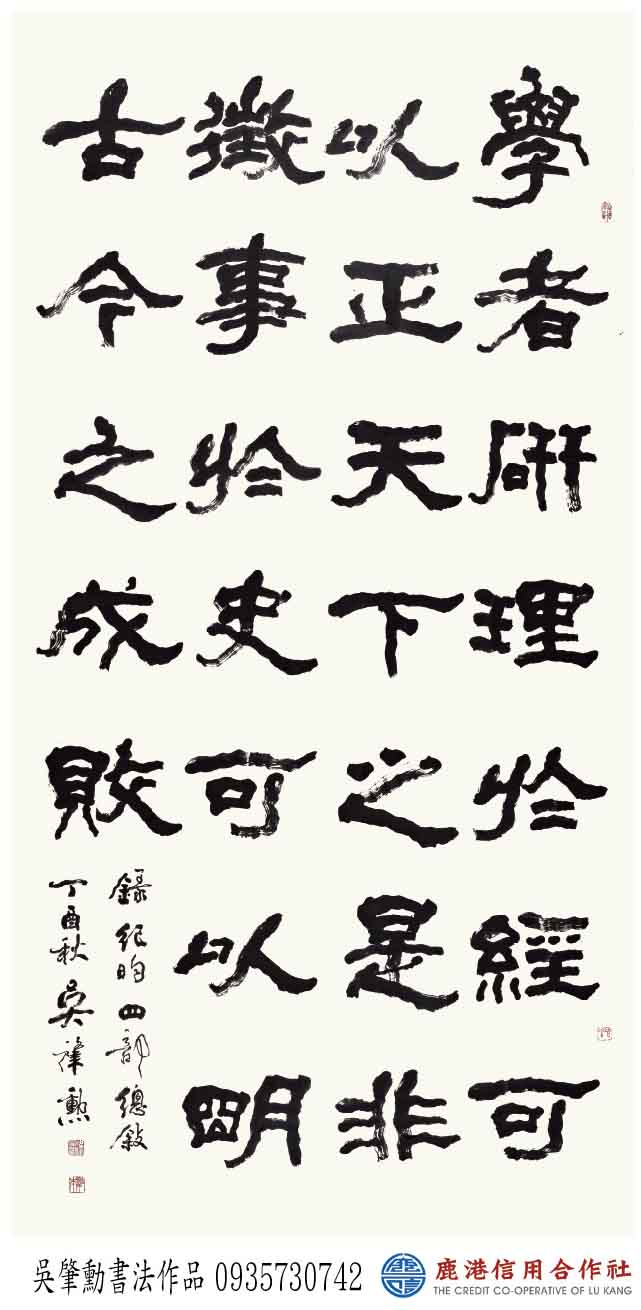 學者研理於經可
以正天下之是非
徵事於史可以明
古今之成敗
錄紀昀四部總敘
丁酉秋吳肇勳
吳肇勳書法作品 0935730742
鹿港信用合作社
THE CREDIT CO-OPERATIVE OF LU KANG